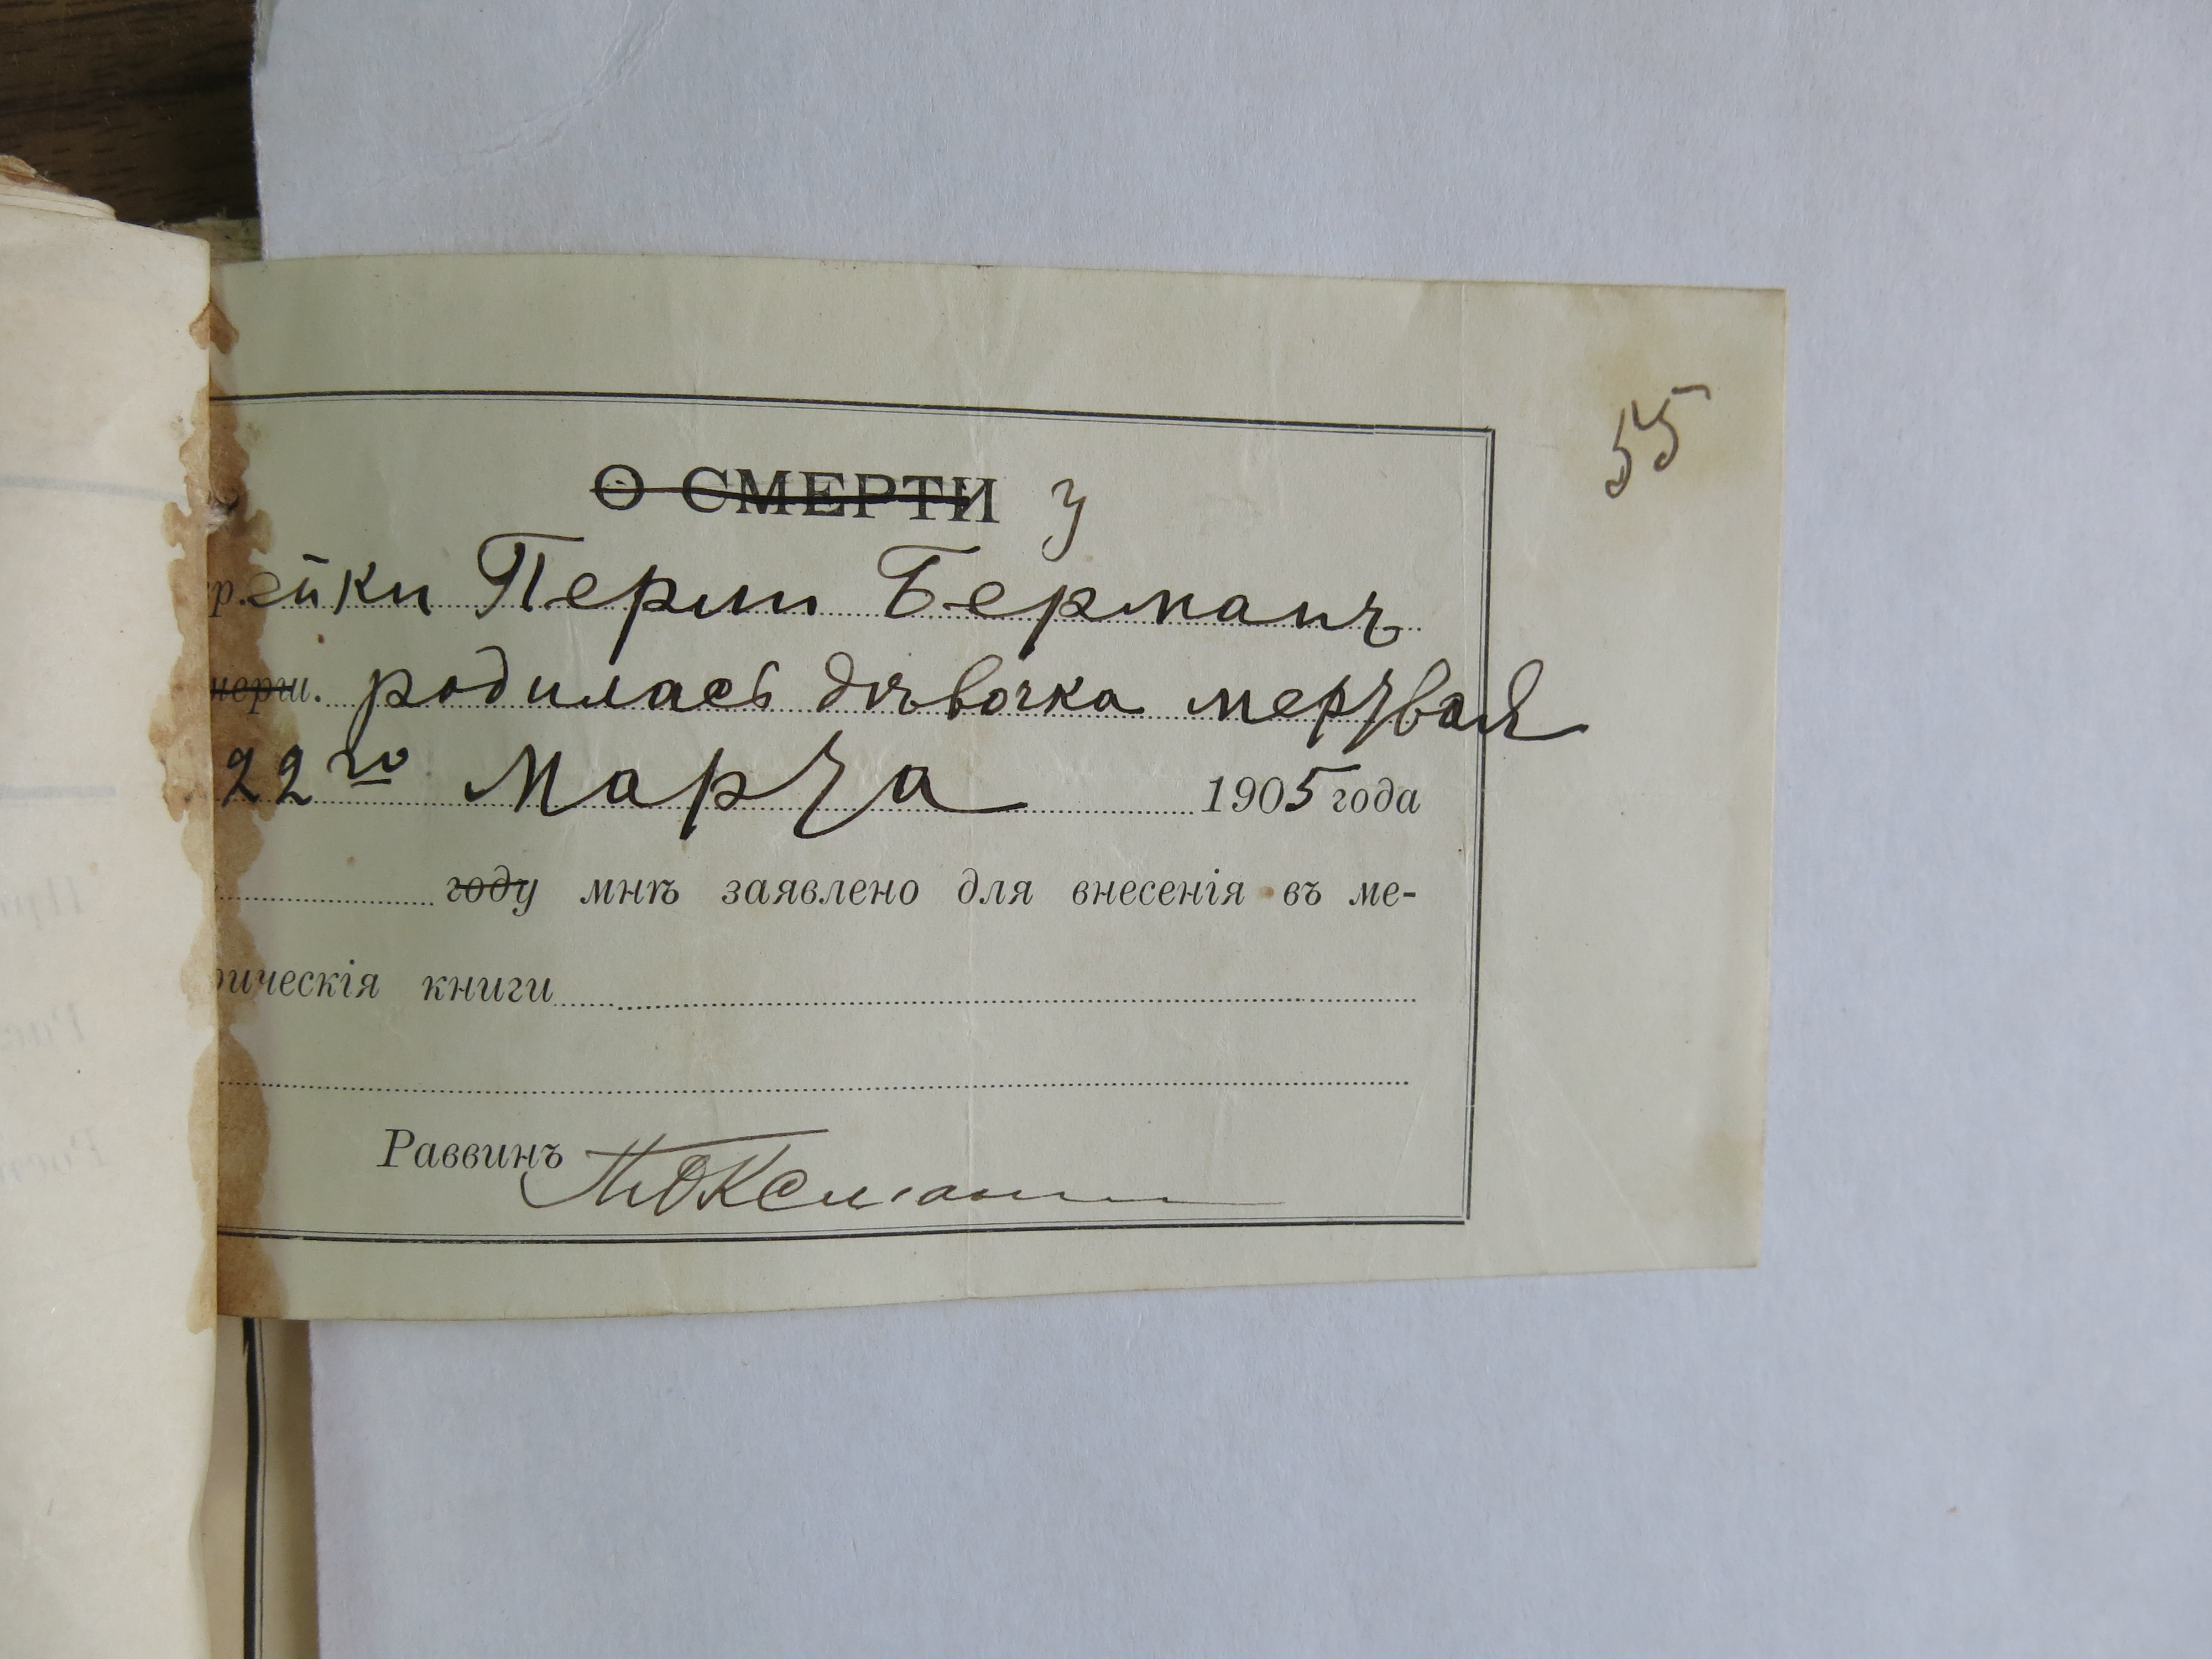 55
О СМЕРТИ у
р.ейки Перли Берманъ
мерш. родилась дѣвочка мертвая
22го Марта 1905 года
году мнѣ заявлено для внесенія въ ме-
рическія книги
Раввинъ